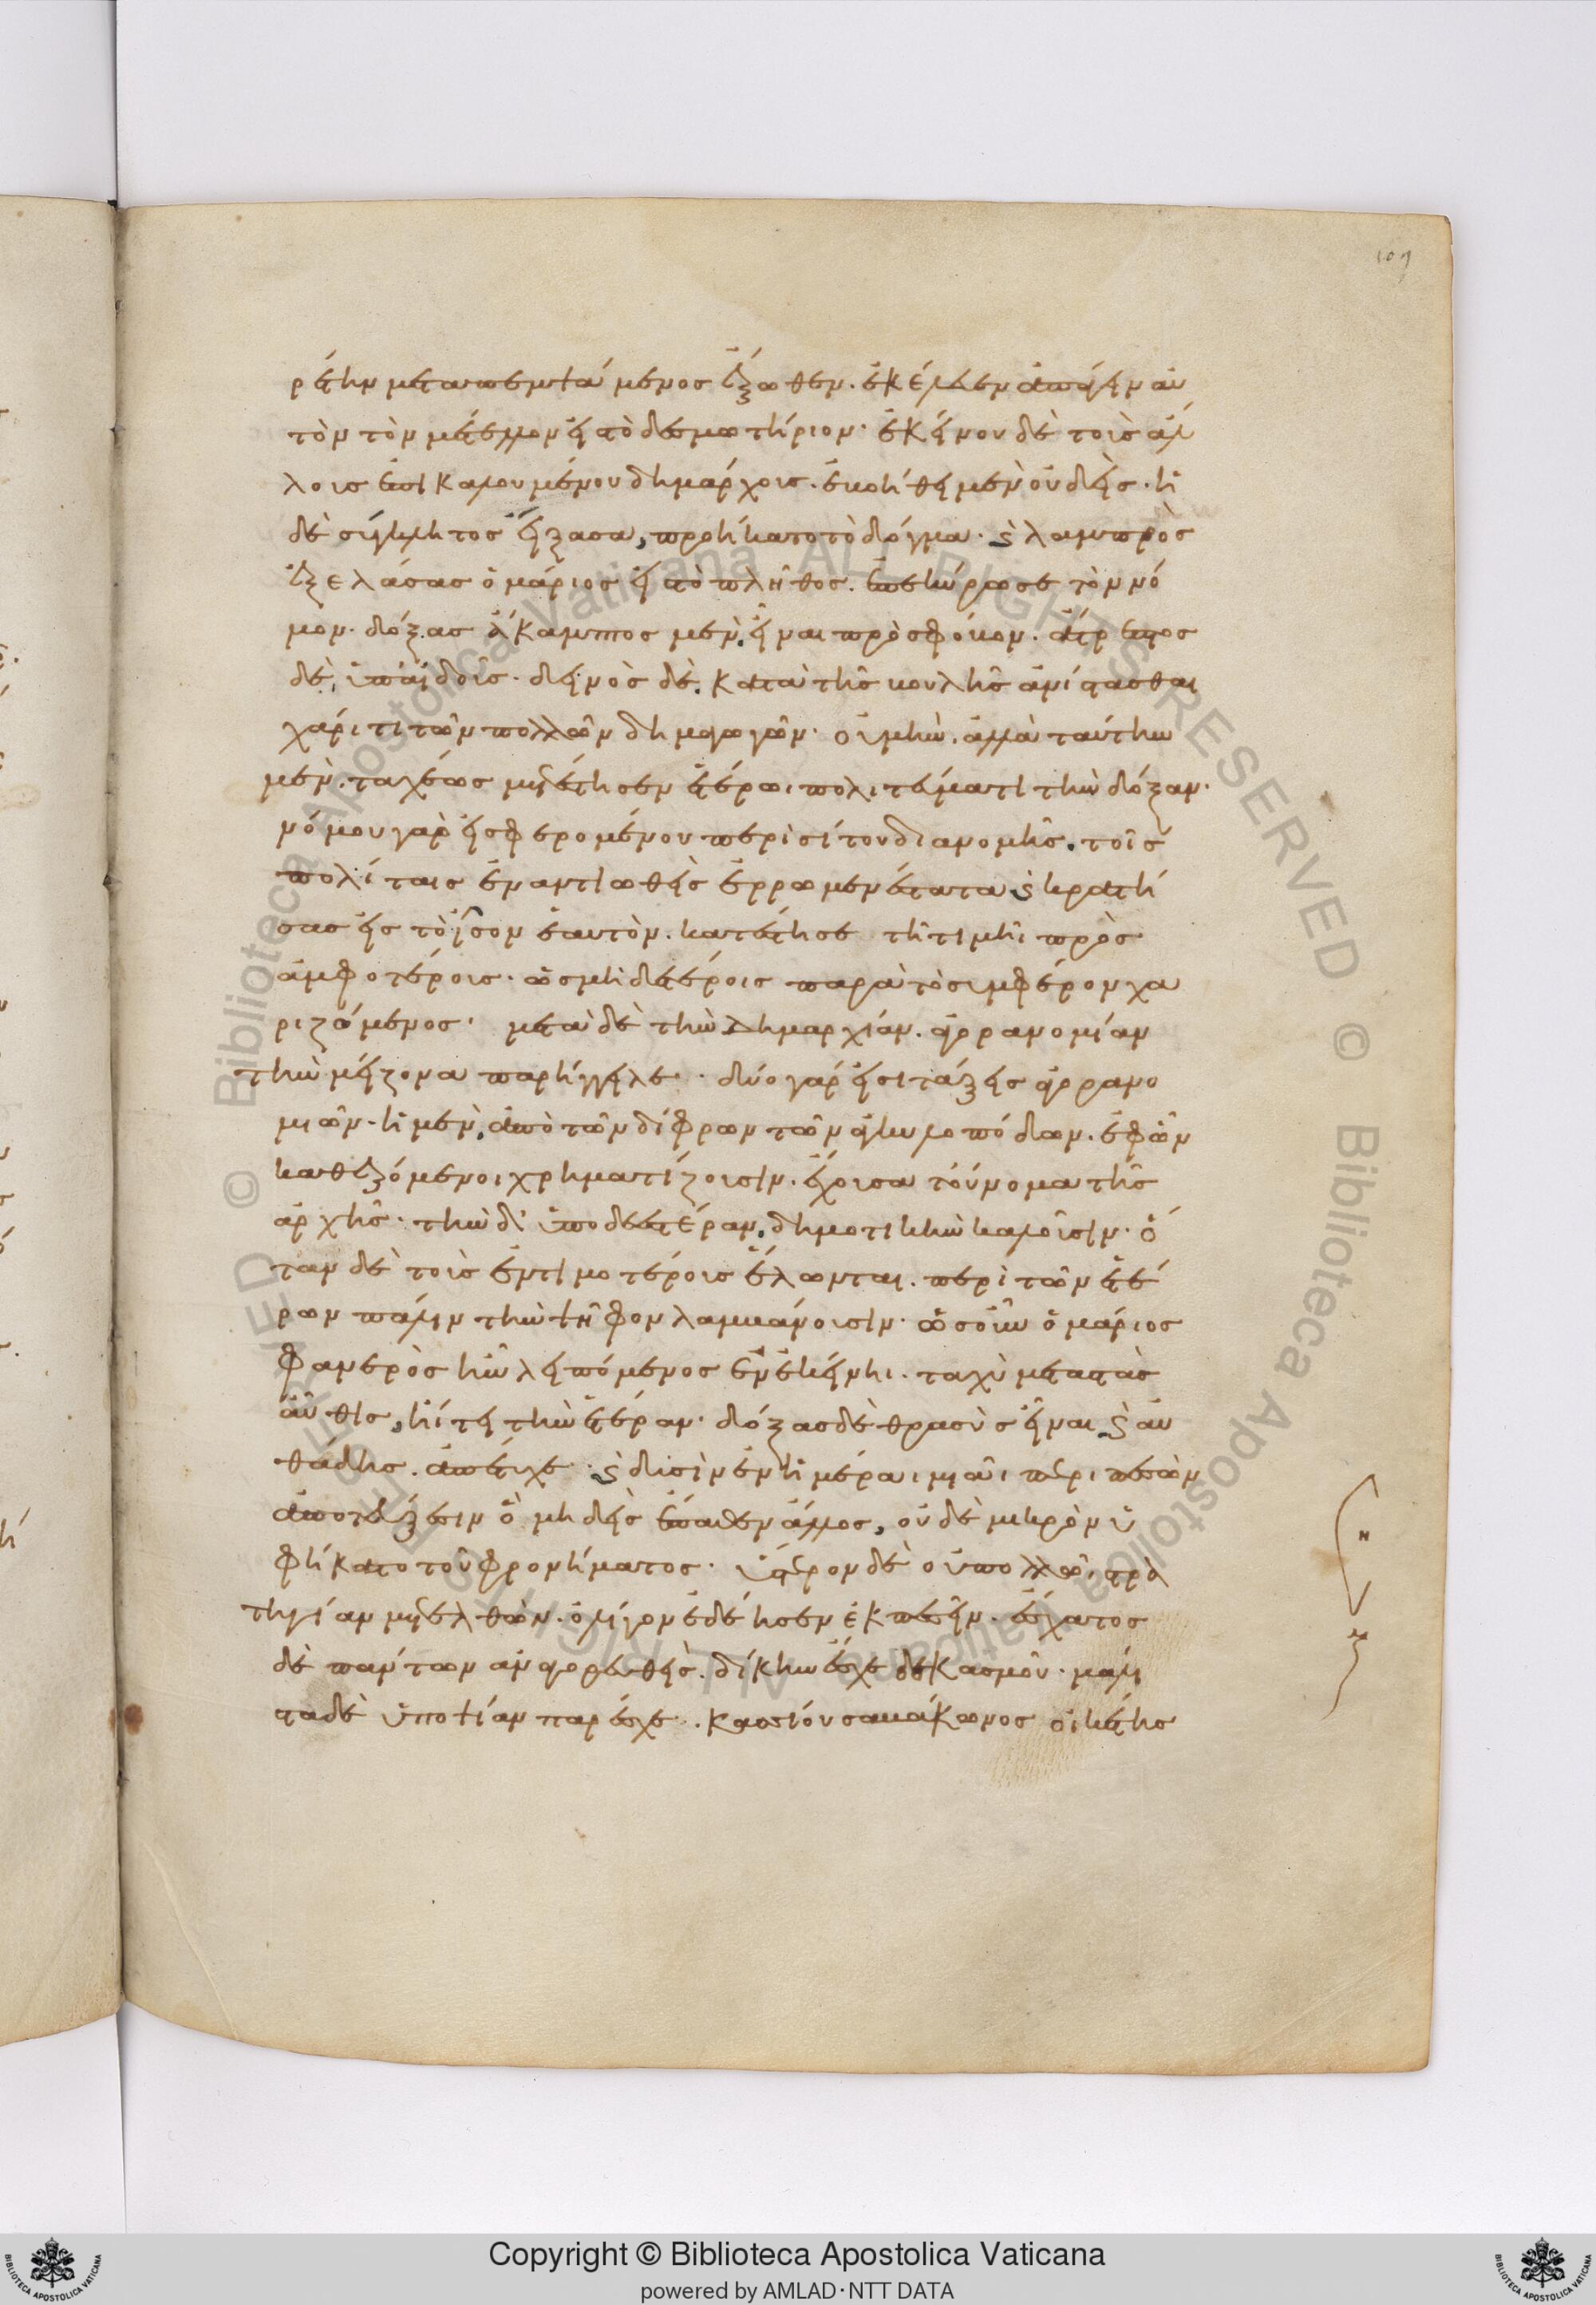 109
ρέτην μεταπεμψάμενος ἔξωθεν. ἐκέλευεν ἀπάγειν αὐ
τὸν τὸν μέτελλον εἰς τὸ δεσμωτήριον· ἐκείνου δὲ τοὺς ἄλ
λους ἐπικαλουμένου δημάρχους. ἐβοήθει μὲν οὐδείς· ἡ
δὲ σύγκλητος εἴξασα, προήκατο τὸ δόγμα· καὶ λαμπρὸς
ἐξελάσας ὁ μάριος εἰς τὸ πλῆθος. ἐπεκύρωσε τὸν νό
μον· δόξας ἄκαμπτος μὲν εἶναι πρὸς φόβον. ἄτρεπτος
δὲ, ὑπ' αἰδοῦς· δεινὸς δὲ κατὰ τῆς βουλῆς ἀνίστασθαι
χάριτι τῶν πολλῶν δημαγωγῶν· οὐ μὴν ἀλλὰ ταύτην
μὲν ταχέως μετέστησεν ἑτέρωι πολιτεύματι τὴν δόξαν·
νόμου γὰρ εἰσφερομένου περὶ σίτου διανομῆς. τοῖς
πολίταις ἐναντιωθεὶς ἐρρωμενέστατα καὶ κρατή
σας εἰς τὸ ἴσον ἑαυτὸν κατέστησε τῆι τιμῆι πρὸς
ἀμφοτέρους· ὡς μηδετέροις παρὰ τὸ συμφέρον χα
ριζόμενος· μετὰ δὲ τὴν δημαρχίαν. ἀγορανομίαν
τὴν μείζονα παρήγγειλε· δύο γάρ εἰσι τάξεις ἀγορανο
μιῶν· ἡ μὲν, ἀπὸ τῶν δίφρων τῶν ἀγκυλοπόδων. ἐφ' ὧν
καθεζόμενοι χρηματίζουσιν. ἔχουσα τοὔνομα τῆς
ἀρχῆς· τὴν δ' ὑποδεεστέραν, δημοτικὴν καλοῦσιν· ὅ
ταν δὲ τοὺς ἐντιμοτέρους ἕλωνται. περὶ τῶν ἑτέ
ρων πάλιν τὴν ψῆφον λαμβάνουσιν· ὡς οὖν ὁ μάριος
φανερὸς ἦν λειπόμενος ἐν ἐκείνηι. ταχὺ μεταστὰς
αὖθις, ἤιτει τὴν ἑτέραν· δόξας δὲ θρασὺς εἶναι καὶ αὐ
θάδης. ἀπέτυχε· καὶ δυσὶν ἐν ἡμέραι μιᾶι περιπεσὼν
ἀποτεύξεσιν ὃ μηδεὶς ἔπαθεν ἄλλος, οὐδὲ μικρὸν ὑ
φήκατο τοῦ φρονήματος· ὕστερον δὲ οὐ πολλῶι στρα
τηγίαν μετελθὼν. ὀλίγον ἐδέησεν ἐκπεσεῖν. ἔσχατος
δὲ πάντων ἀναγορευθεὶς. δίκην ἔσχε δεκασμοῦ· μάλι
στα δὲ ὑποψίαν παρέσχε. κασσίου σαβάκωνος οἰκέτης